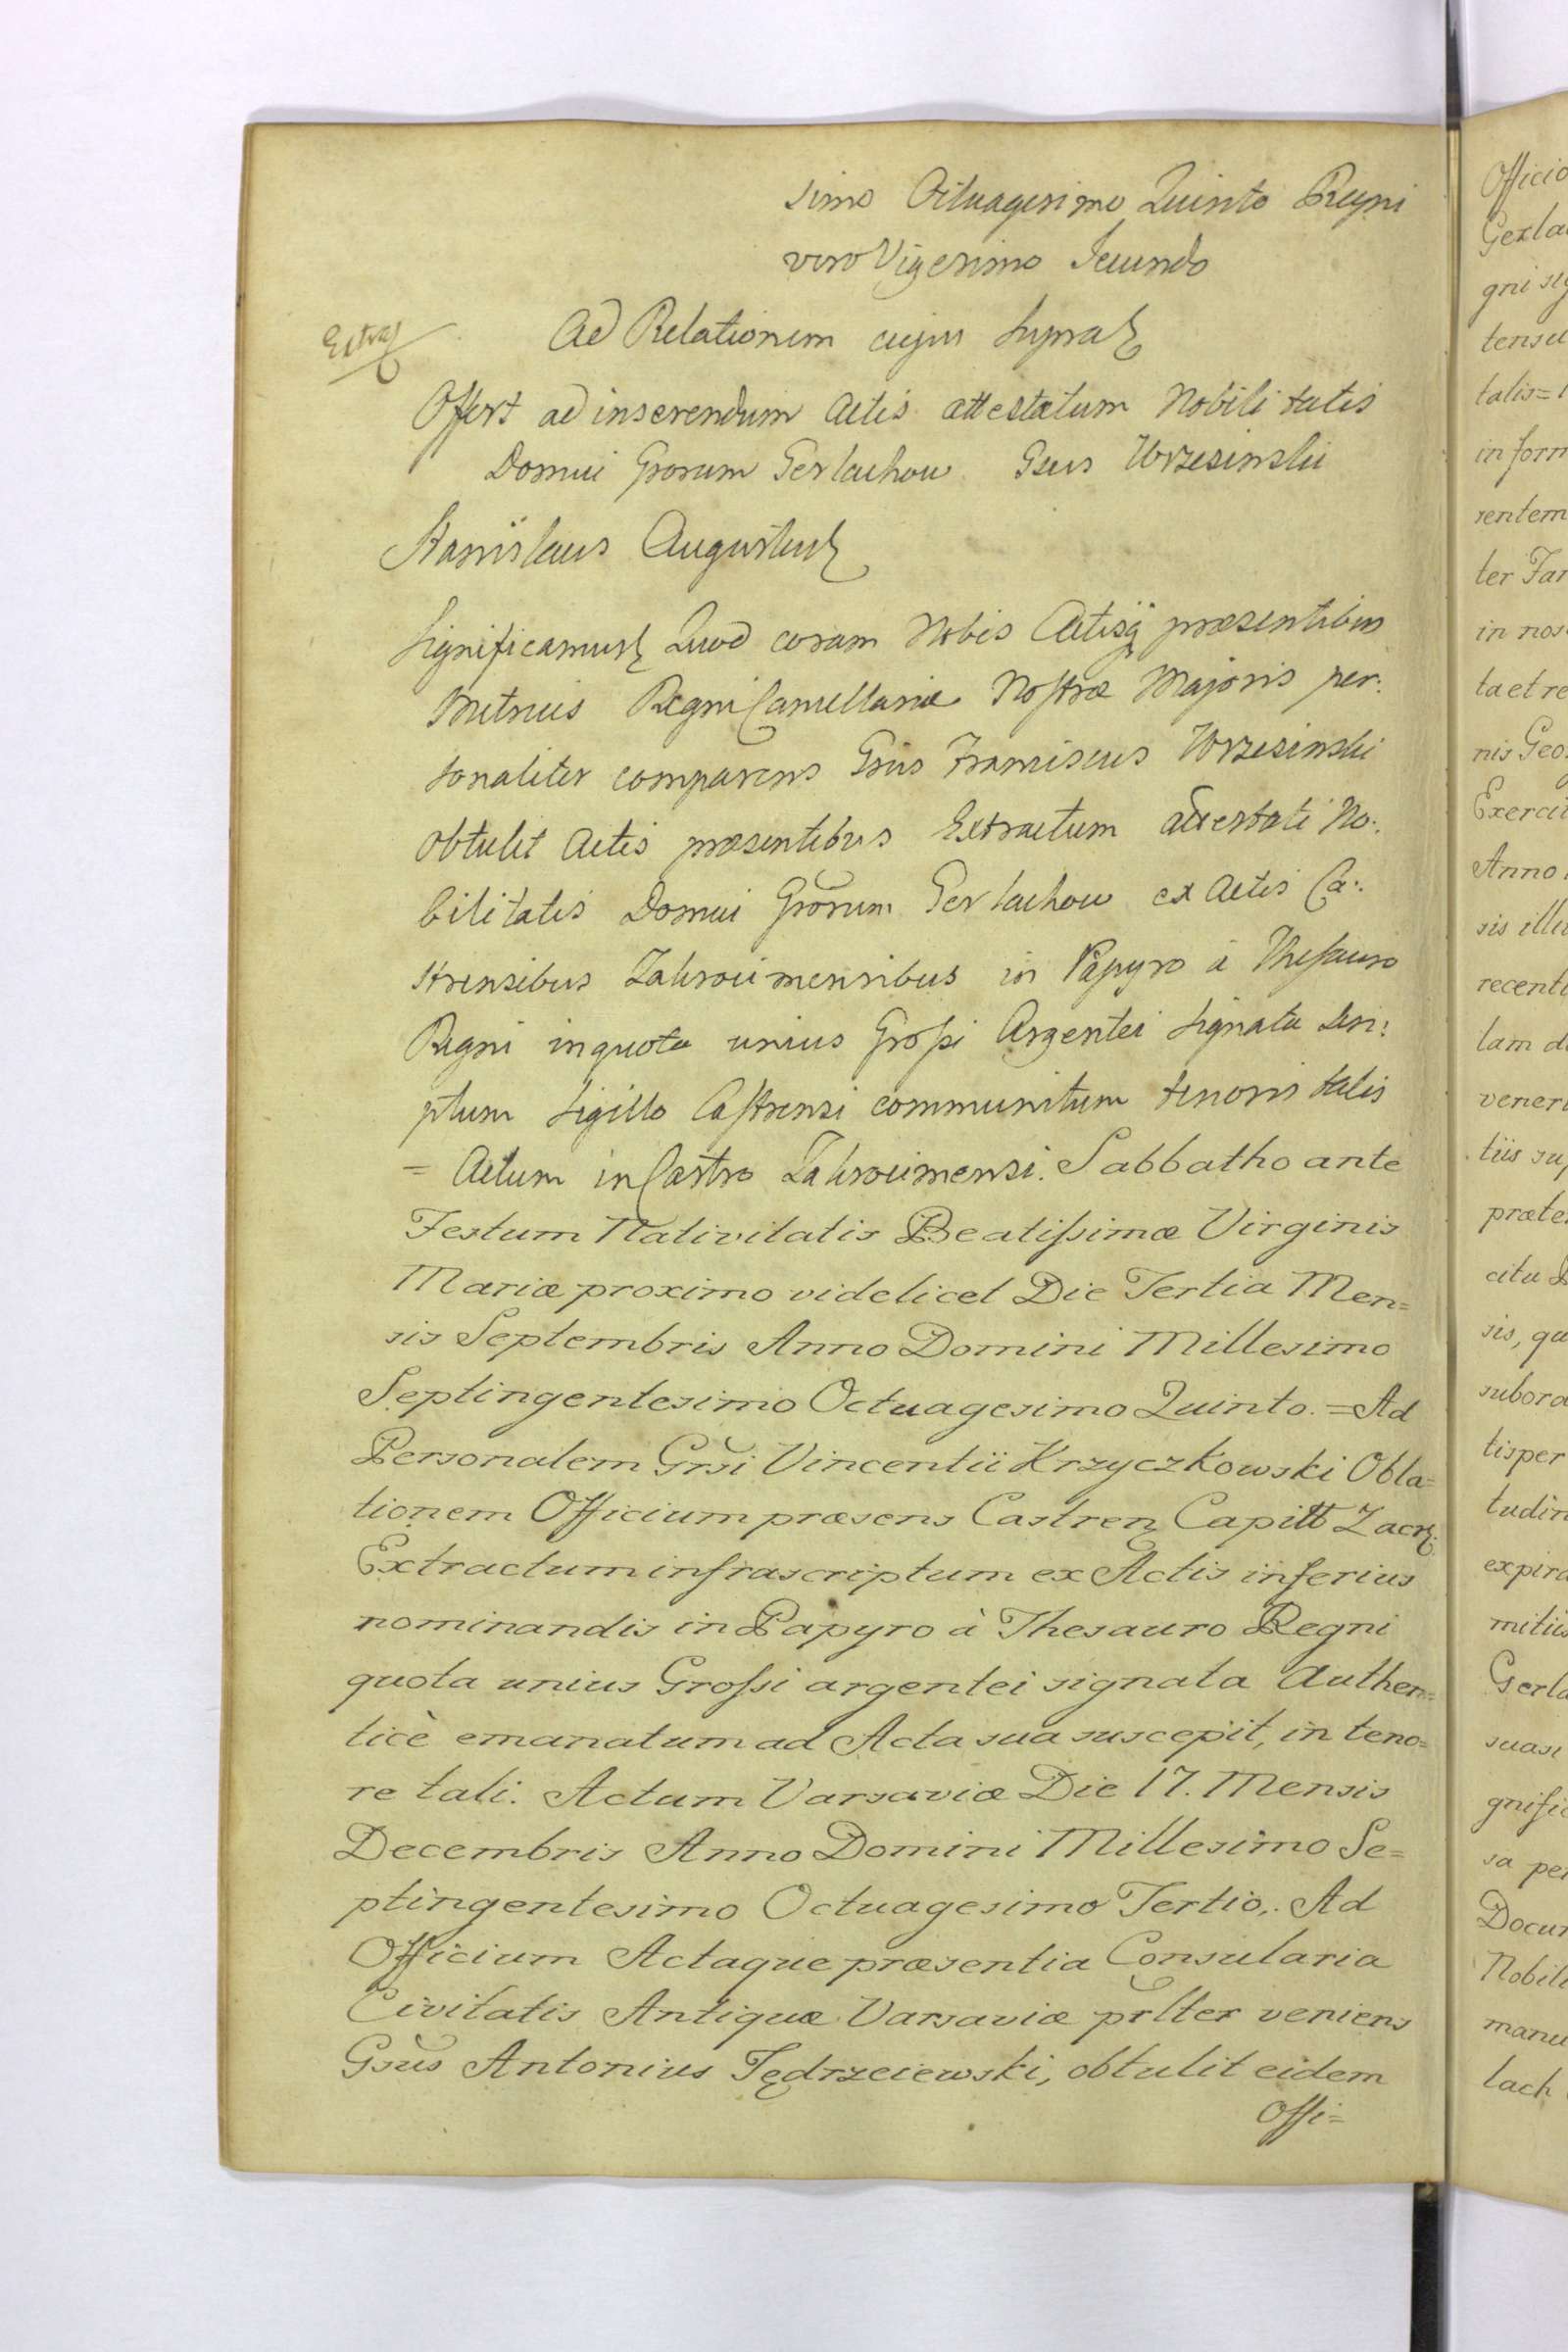 simo Octuagesimo Quinto Regni
vero Vigesimo Secundo
Extras
Ad Relationem cujus Supra
Offert ad inserendum Actis attestatum Nobilitatis
Domui Grorum Gerlachow Gsus Wrzesinski
Stanislaus Augustus
Significamus Quod coram Nobis Actisq præsentibus
Metrices Regni Cancellariæ Nostræ Majoris per:
sonaliter comparens Gsus Franciscus Wrzesinski
obtulit Actis præsentibus Extractum attestati No:
bilitatis Domui Grorum Gerlachow ex Actis Ca:
strensibus Zakrocimensibus in Papyro à Thesauro
Regni in quota unius Grossi Argentei Signata Scri:
ptum Sigillo Castrensi communitum tenoris talis
= Actum in Castro Zakrocimensi. Sabbatho ante
Festum Nativitatis Beatissimæ Virginis
Mariæ proximo videlicet Die Tertia Men=
sis Septembris Anno Domini Millesimo
Septingentesimo Octuagesimo Quinto. = Ad
Personalem Grsi Vincentii Krzyczkowski Obla=
tionem Officium præsens Castren Capitt Zacr:
Extractum infrascriptum ex Actis inferius
nominandis in Papyro à Thesauro Regni
quota unius Grossi argentei signata Authen=
ticè emanatum ad Acta sua suscepit, in teno=
re tali. Actum Varsaviæ Die 17. Mensis
Decembris Anno Domini Millesimo Se=
ptingentesimo Octuagesimo Tertio,. Ad
Officium Actaque præsentia Consularia
Civitatis Antiquæ Varsaviæ prlter veniens
Gsus Antonius Jędrzeiewski, obtulit eidem
Offi=
Officio
gni sig
talis=
in form
rentem
ter Fa
in nos
ta et re
nis Geo
Exercit
Anno
sis illu
recent
lam d
vener
tiis su
præte
sis, qu
subord
tis per
tudin
expira
mitiis
Gerla
suasi
gnific
sa per
Docum
Nobili
manu
lach